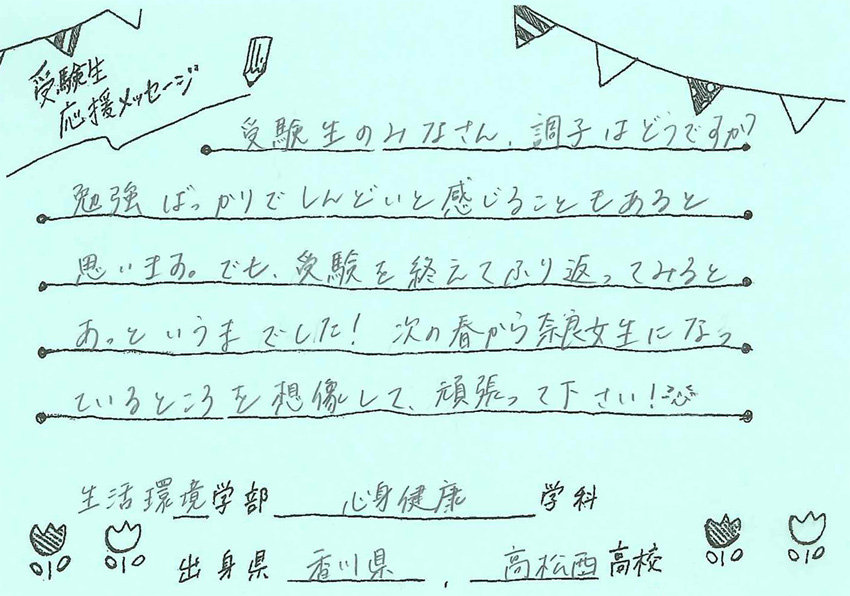 受験生
応援メッセージ
受験生のみなさん、調子はどうですか?
勉強ばっかりでしんどいと感じることもあると
思います。でも、受験を終えてふり返ってみると
あっというまでした! 次の春から奈良女生になっ
ているところを想像して、頑張って下さい!
生活環境学部 心身健康 学科
出身県 香川県 , 高松西高校